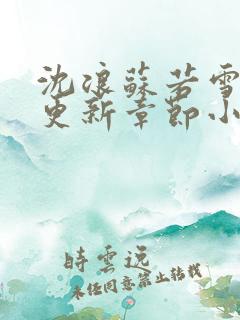 沈浪蘇若雪
更新章節小
時雲逸
未经同意禁止转载